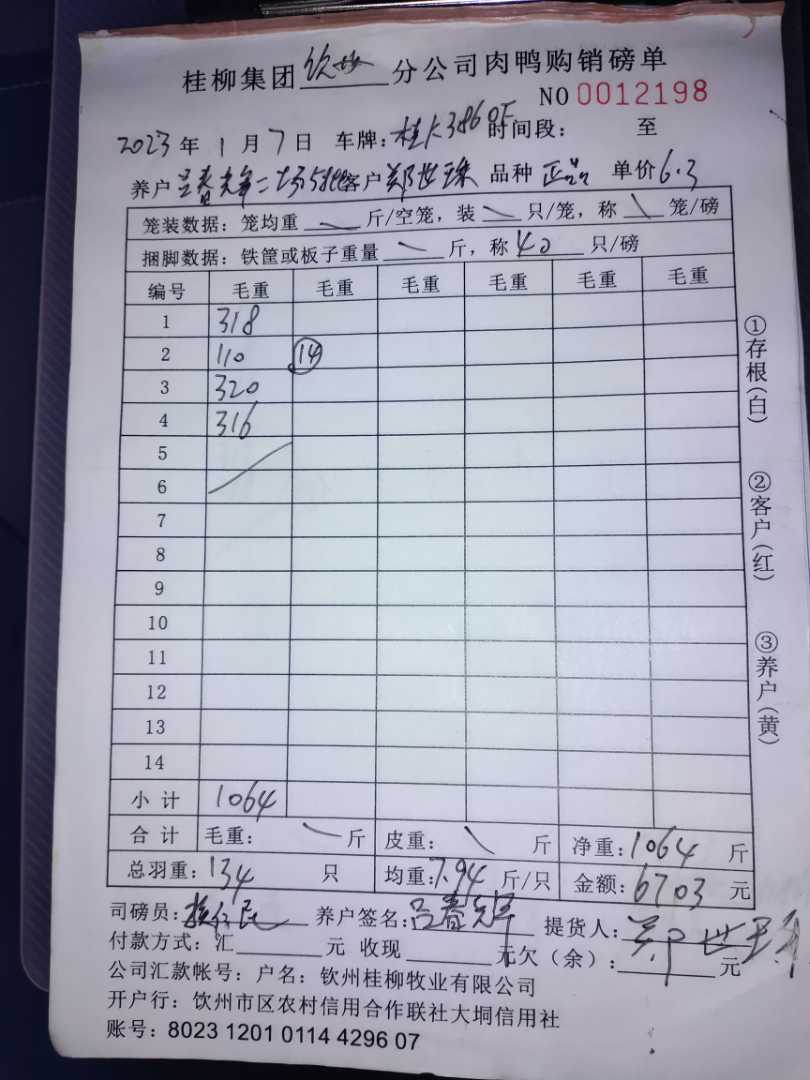 桂柳集团 钦州 分公司肉鸭购销磅单
NO 0012198
2023 年 1 月 7 日 车牌: 桂 时间段: 至
养户 吕春 二场 客户 郑世 品种 正品 单价 6.3
笼装数据: 笼均重 斤/空笼, 装 只/笼, 称 笼/磅
捆脚数据: 铁筐或板子重量 斤, 称 40 只/磅
编号 毛重 毛重 毛重 毛重 毛重 毛重
1 318
2 110 ⑭
3 320
4 316
5
6
7
8
9
10
11
12
13
14
小计 1064
合计 毛重: 斤 皮重: 斤 净重: 1064 斤
总羽重: 134 只 均重: 7.94 斤/只 金额: 6703 元
司磅员: 养户签名: 吕春 提货人: 郑世
付款方式: 汇 元 收现 元欠(余): 元
公司汇款帐号: 户名: 钦州桂柳牧业有限公司
开户行: 饮州市区农村信用合作联社大垌信用社
账号: 8023 1201 0114 4296 07
①存根(白)
②客户(红)
③养户(黄)